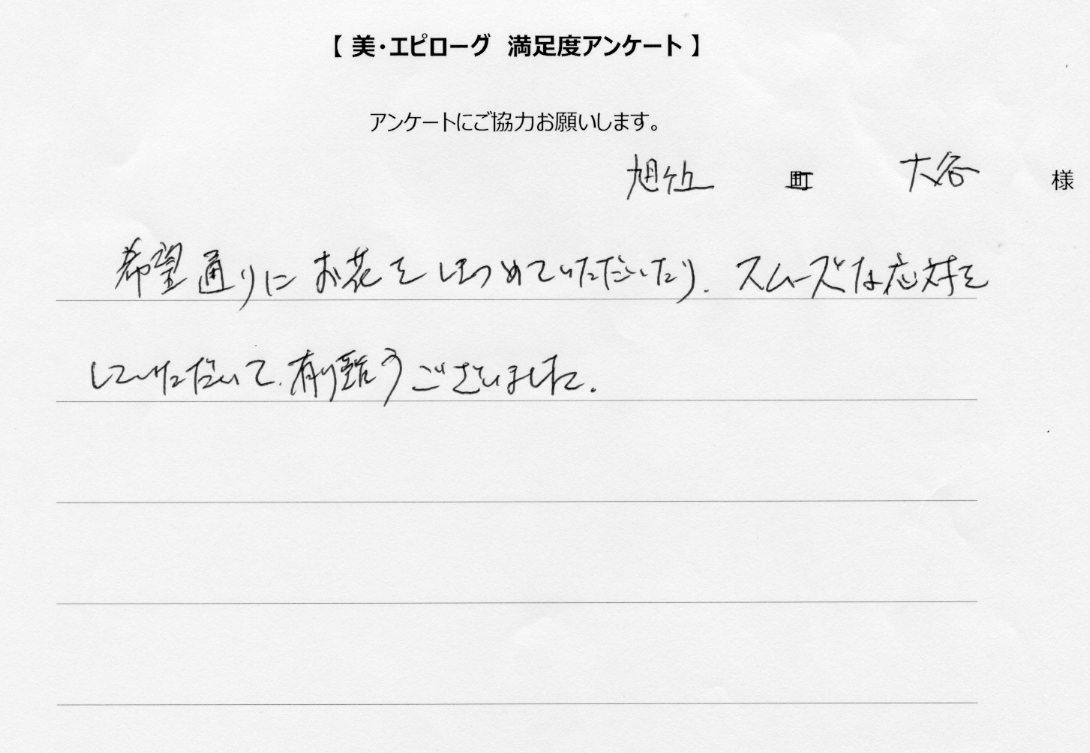 【 美・エピローグ 満足度アンケート 】
アンケートにご協力お願いします。
旭ヶ丘 町 大谷 様
希望通りにお花をまつめていただいたり、スムーズな応対を
していただいて、有り難うございました。